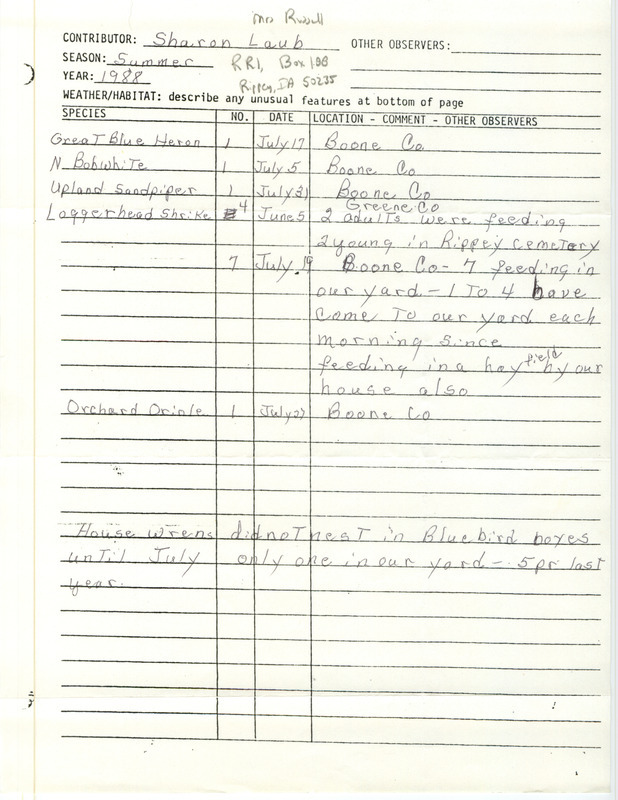 Mrs Russell
CONTRIBUTOR: Sharon Laub OTHER OBSERVERS:
SEASON: Summer RR1, Box 188
YEAR: 1988 Rippey, IA 50235
WEATHER/HABITAT: describe any unusual features at bottom of page
SPECIES NO. DATE LOCATION - COMMENT - OTHER OBSERVERS
Great Blue Heron 1 July 17 Boone Co.
N Bobwhite 1 July 5 Boone Co
Upland Sandpiper 1 July 31 Boone Co
Greene Co
Loggerhead Shrike 4 June 5 2 adults were feeding
2 young in Rippey Cemetery
7 July 19 Boone Co - 7 feeding in
our yard - 1 To 4 have
come To our yard each
morning since
feeding in a hay field by our
house also
Orchard Oriole 1 July 27 Boone Co
House wrens did not nest in Bluebird boxes
until July only one in our yard - 5 pr last
year.